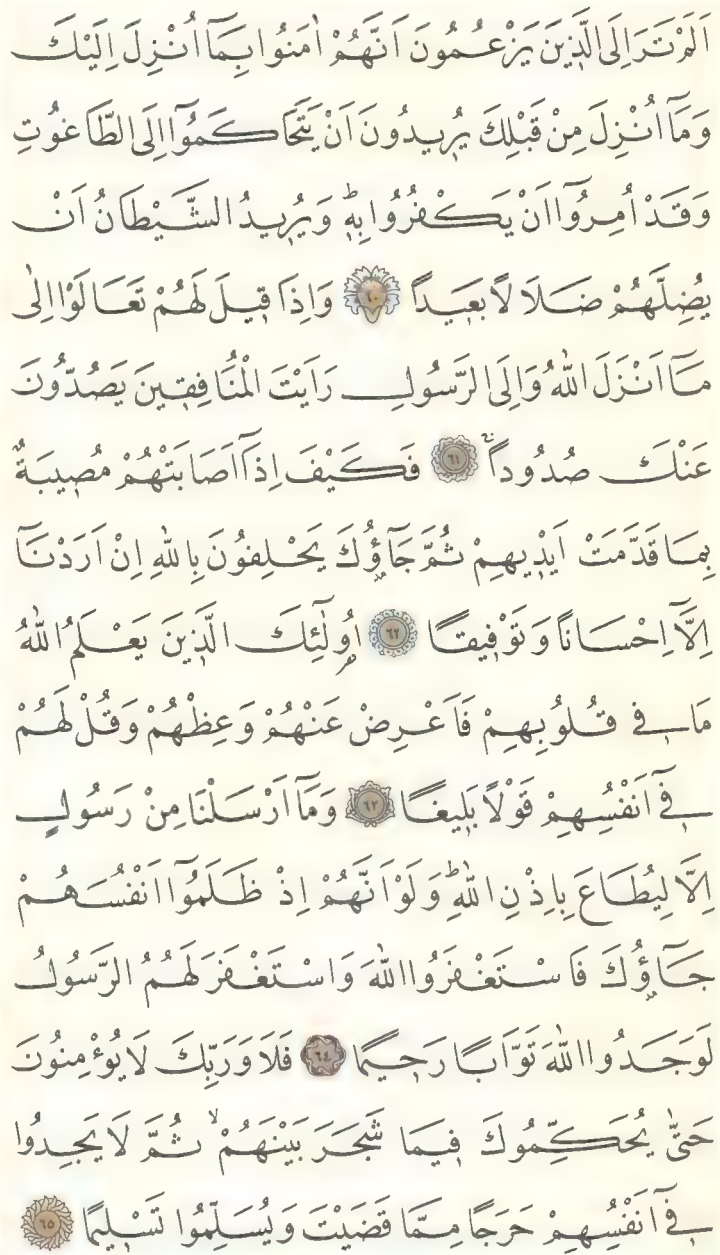 اَلَمْ تَرَ اِلَى الَّذ۪ينَ يَزْعُمُونَ اَنَّهُمْ اٰمَنُوا بِمَٓا اُنْزِلَ اِلَيْكَ
وَمَٓا اُنْزِلَ مِنْ قَبْلِكَ يُر۪يدُونَ اَنْ يَتَحَاكَمُٓوا اِلَى الطَّاغُوتِ
وَقَدْ اُمِرُٓوا اَنْ يَكْفُرُوا بِه۪ۜ وَيُر۪يدُ الشَّيْطَانُ اَنْ
يُضِلَّهُمْ ضَلَالًا بَع۪يدًا ﴿٦٠﴾ وَاِذَا ق۪يلَ لَهُمْ تَعَالَوْا اِلٰى
مَٓا اَنْزَلَ اللّٰهُ وَاِلَى الرَّسُولِ رَاَيْتَ الْمُنَافِق۪ينَ يَصُدُّونَ
عَنْكَ صُدُودًاۚ ﴿٦١﴾ فَكَيْفَ اِذَٓا اَصَابَتْهُمْ مُص۪يبَةٌ
بِمَا قَدَّمَتْ اَيْد۪يهِمْ ثُمَّ جَٓاؤُ۫كَ يَحْلِفُونَ بِاللّٰهِ اِنْ اَرَدْنَٓا
اِلَّٓا اِحْسَانًا وَتَوْف۪يقًا ﴿٦٢﴾ اُو۬لٰٓئِكَ الَّذ۪ينَ يَعْلَمُ اللّٰهُ
مَا ف۪ي قُلُوبِهِمْ فَاَعْرِضْ عَنْهُمْ وَعِظْهُمْ وَقُلْ لَهُمْ
ف۪ٓي اَنْفُسِهِمْ قَوْلًا بَل۪يغًا ﴿٦٣﴾ وَمَٓا اَرْسَلْنَا مِنْ رَسُولٍ
اِلَّا لِيُطَاعَ بِاِذْنِ اللّٰهِۜ وَلَوْ اَنَّهُمْ اِذْ ظَلَمُٓوا اَنْفُسَهُمْ
جَٓاؤُ۫كَ فَاسْتَغْفَرُوا اللّٰهَ وَاسْتَغْفَرَ لَهُمُ الرَّسُولُ
لَوَجَدُوا اللّٰهَ تَوَّابًا رَح۪يمًا ﴿٦٤﴾ فَلَا وَرَبِّكَ لَا يُؤْمِنُونَ
حَتّٰى يُحَكِّمُوكَ ف۪يمَا شَجَرَ بَيْنَهُمْۙ ثُمَّ لَا يَجِدُوا
ف۪ٓي اَنْفُسِهِمْ حَرَجًا مِمَّا قَضَيْتَ وَيُسَلِّمُوا تَسْل۪يمًا ﴿٦٥﴾